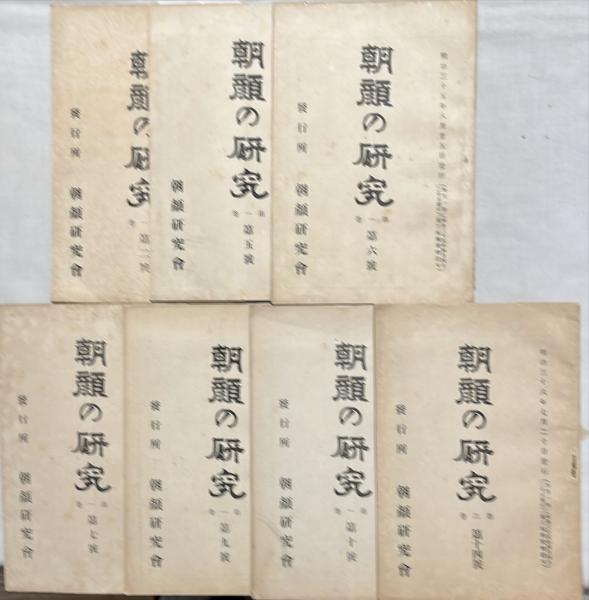 朝顔の研究
第二號
發行所 朝顔研究會
朝顔の研究
第一巻 第五號
朝顔研究會
朝顔の研究
第一巻 第六號
發行所 朝顔研究會
朝顔の研究
第一巻 第七號
發行所 朝顔研究會
朝顔の研究
第一巻 第九號
發行所 朝顔研究會
朝顔の研究
第一巻 第十號
發行所 朝顔研究會
朝顔の研究
第二巻 第十四號
發行所 朝顔研究會